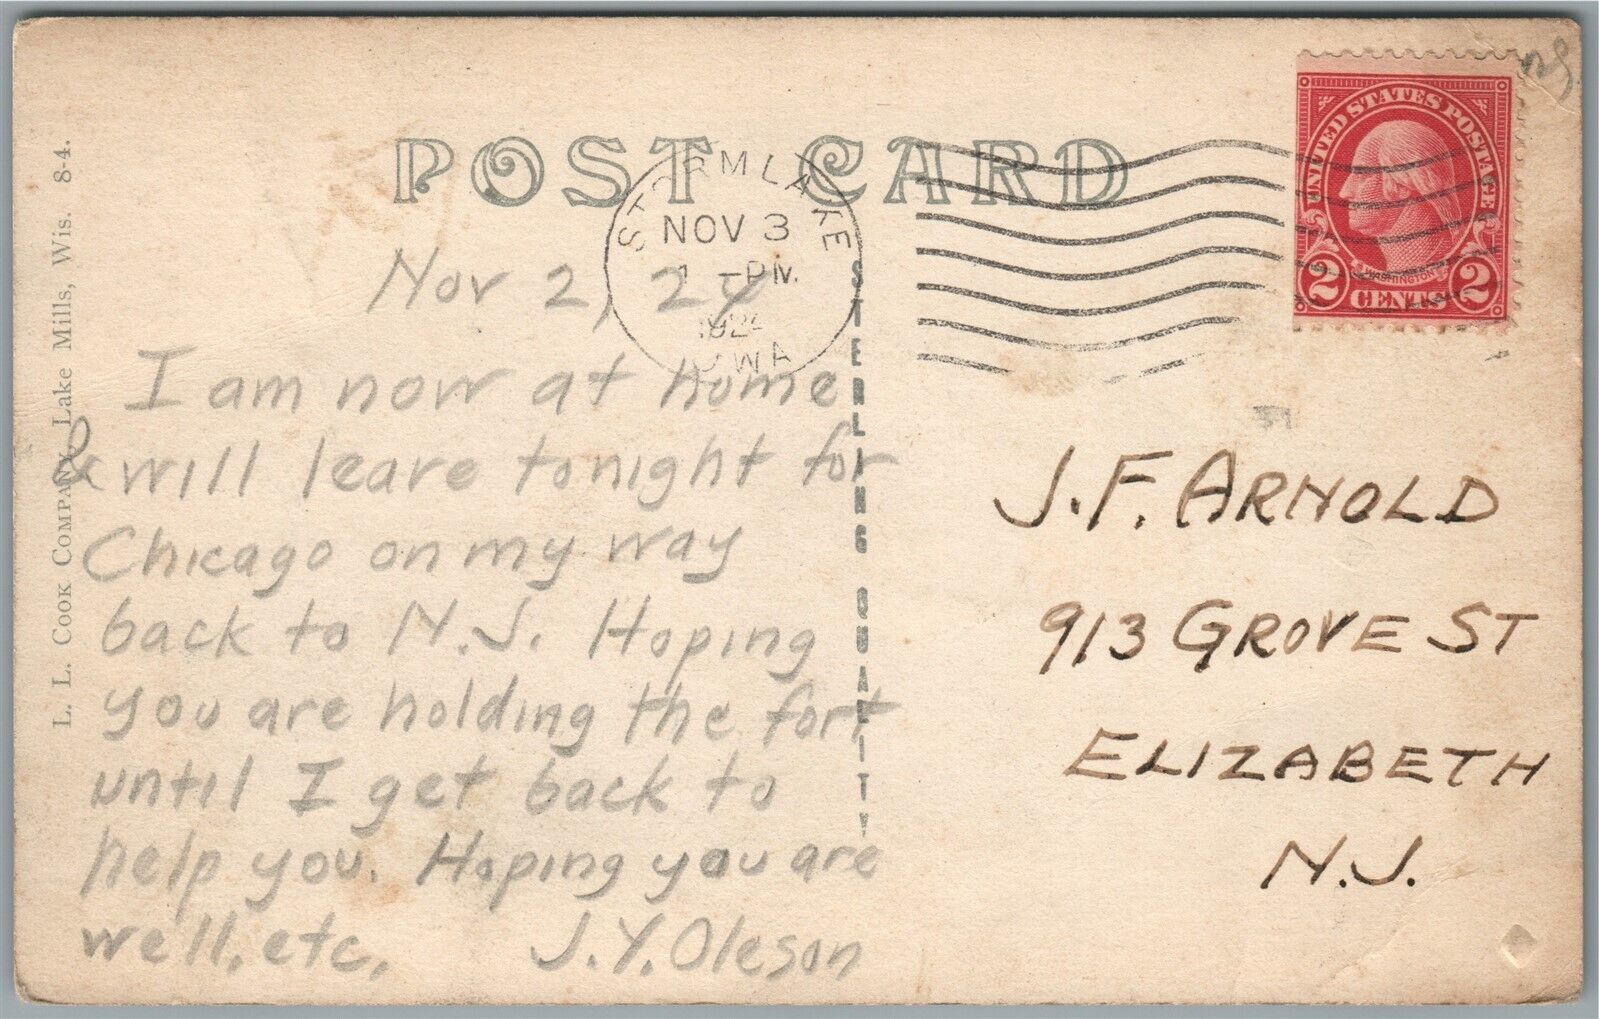 POST CARD
STORM LAKE
NOV 3
1 PM
192
IOWA
UNITED STATES POSTAGE
WASHINGTON
2 CENTS 2
Nov 2, 24
I am now at home
& will leave tonight for
Chicago on my way
back to N.J. Hoping
you are holding the fort
until I get back to
help you. Hoping you are
well, etc. J.Y. Oleson
J.F. ARNOLD
913 GROVE ST
ELIZABETH
N.J.
STERLING QUALITY
L. L. COOK COMPANY, Lake Mills, Wis. 8-4.